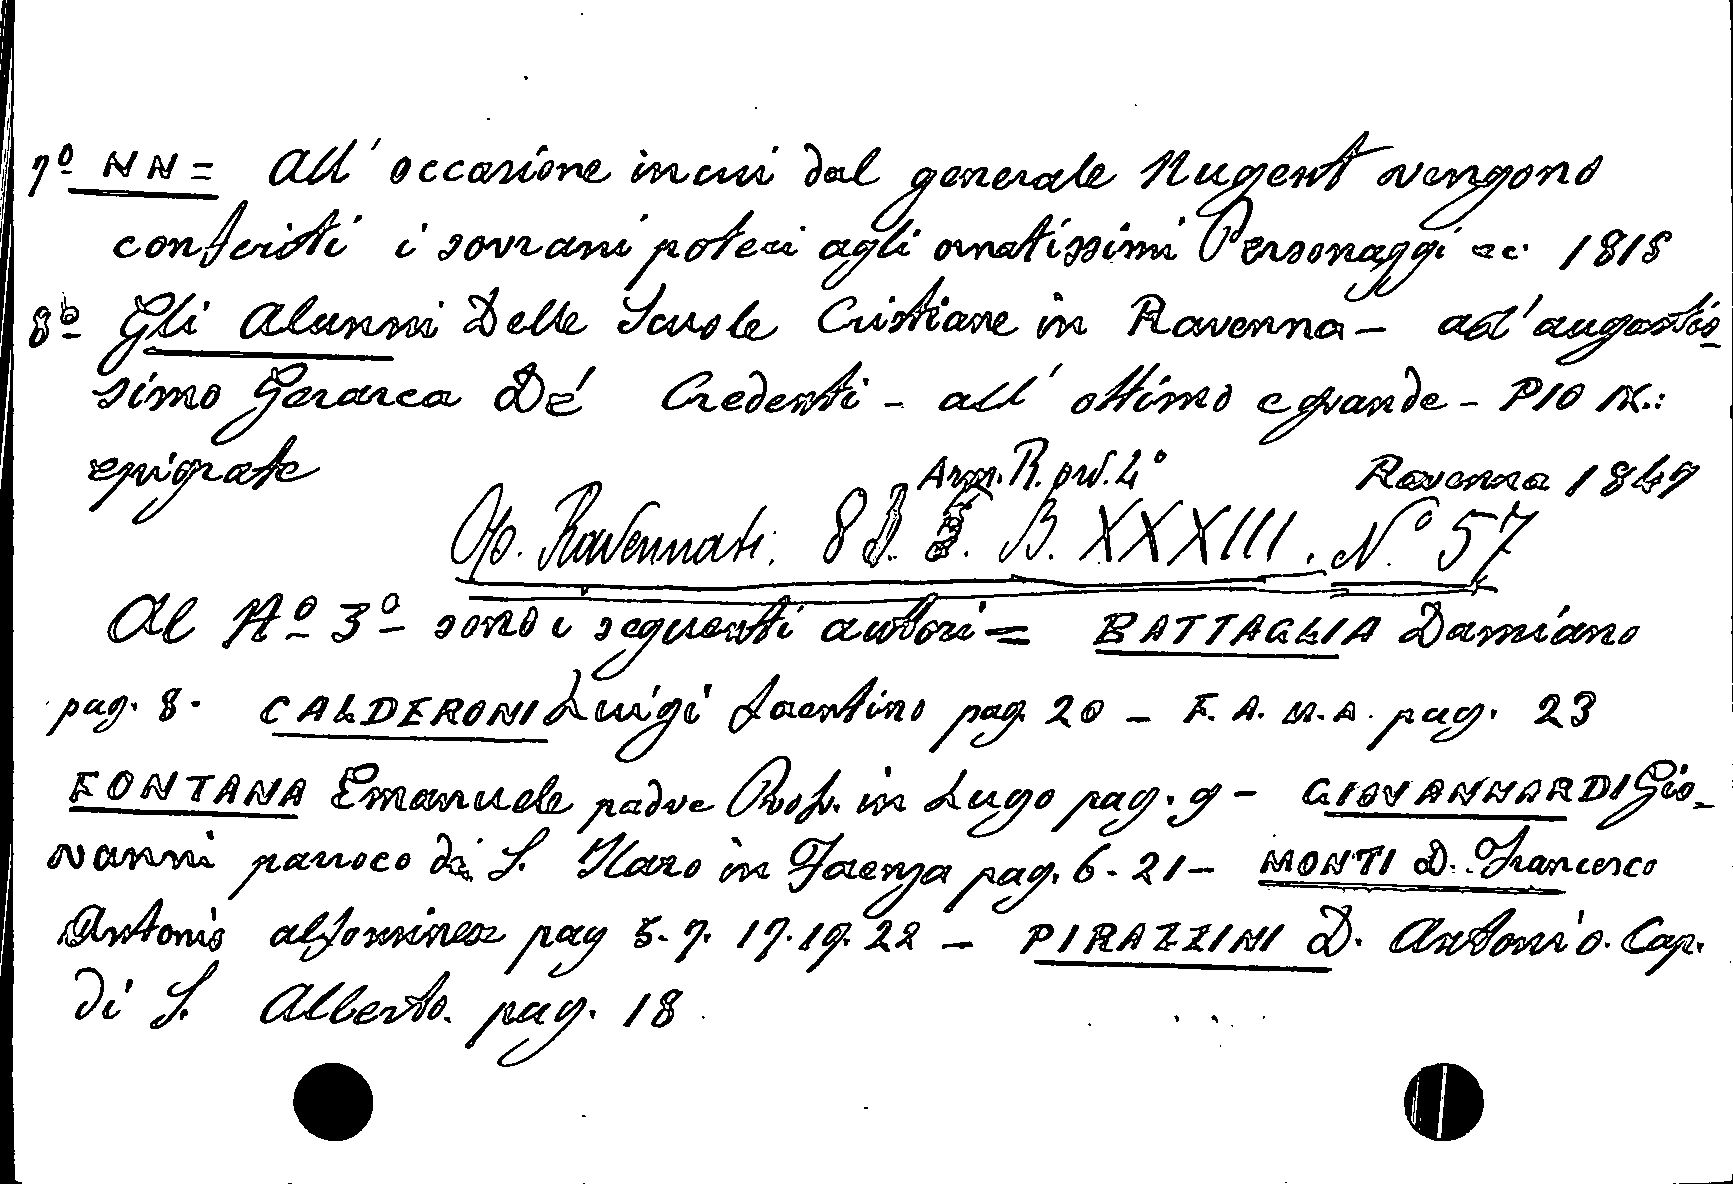 7º NN = All' occasione in cui dal generale Nugent vengono
conferiti i sovrani poteri agli ornatissimi Personaggi ec. 1815
8º Gli Alunni Delle Scuole Cristiane in Ravenna - all' augustis-
simo Gerarca De' Credenti - all' ottimo e grande - PIO IX.:
epigrafe Arm. R. ord. 4º Ravenna 1849
Op. Ravennati. 8 B. B. XXXIII. Nº 57
Al Nº 3º sono i seguenti autori = BATTAGLIA Damiano
pag. 8. CALDERONI Luigi faentino pag. 20 - F. A. M. A. pag. 23
FONTANA Emanuele padre Prof. in Lugo pag. 9 - GIOVANNARDI Gio-
vanni parroco di S. Ilaro in Faenza pag. 6. 21 - MONTI D. Francesco
Antonio alfonsinese pag 5. 7. 17. 19. 22 - PIRAZZINI D. Antonio. Cap.
di S. Alberto. pag. 18